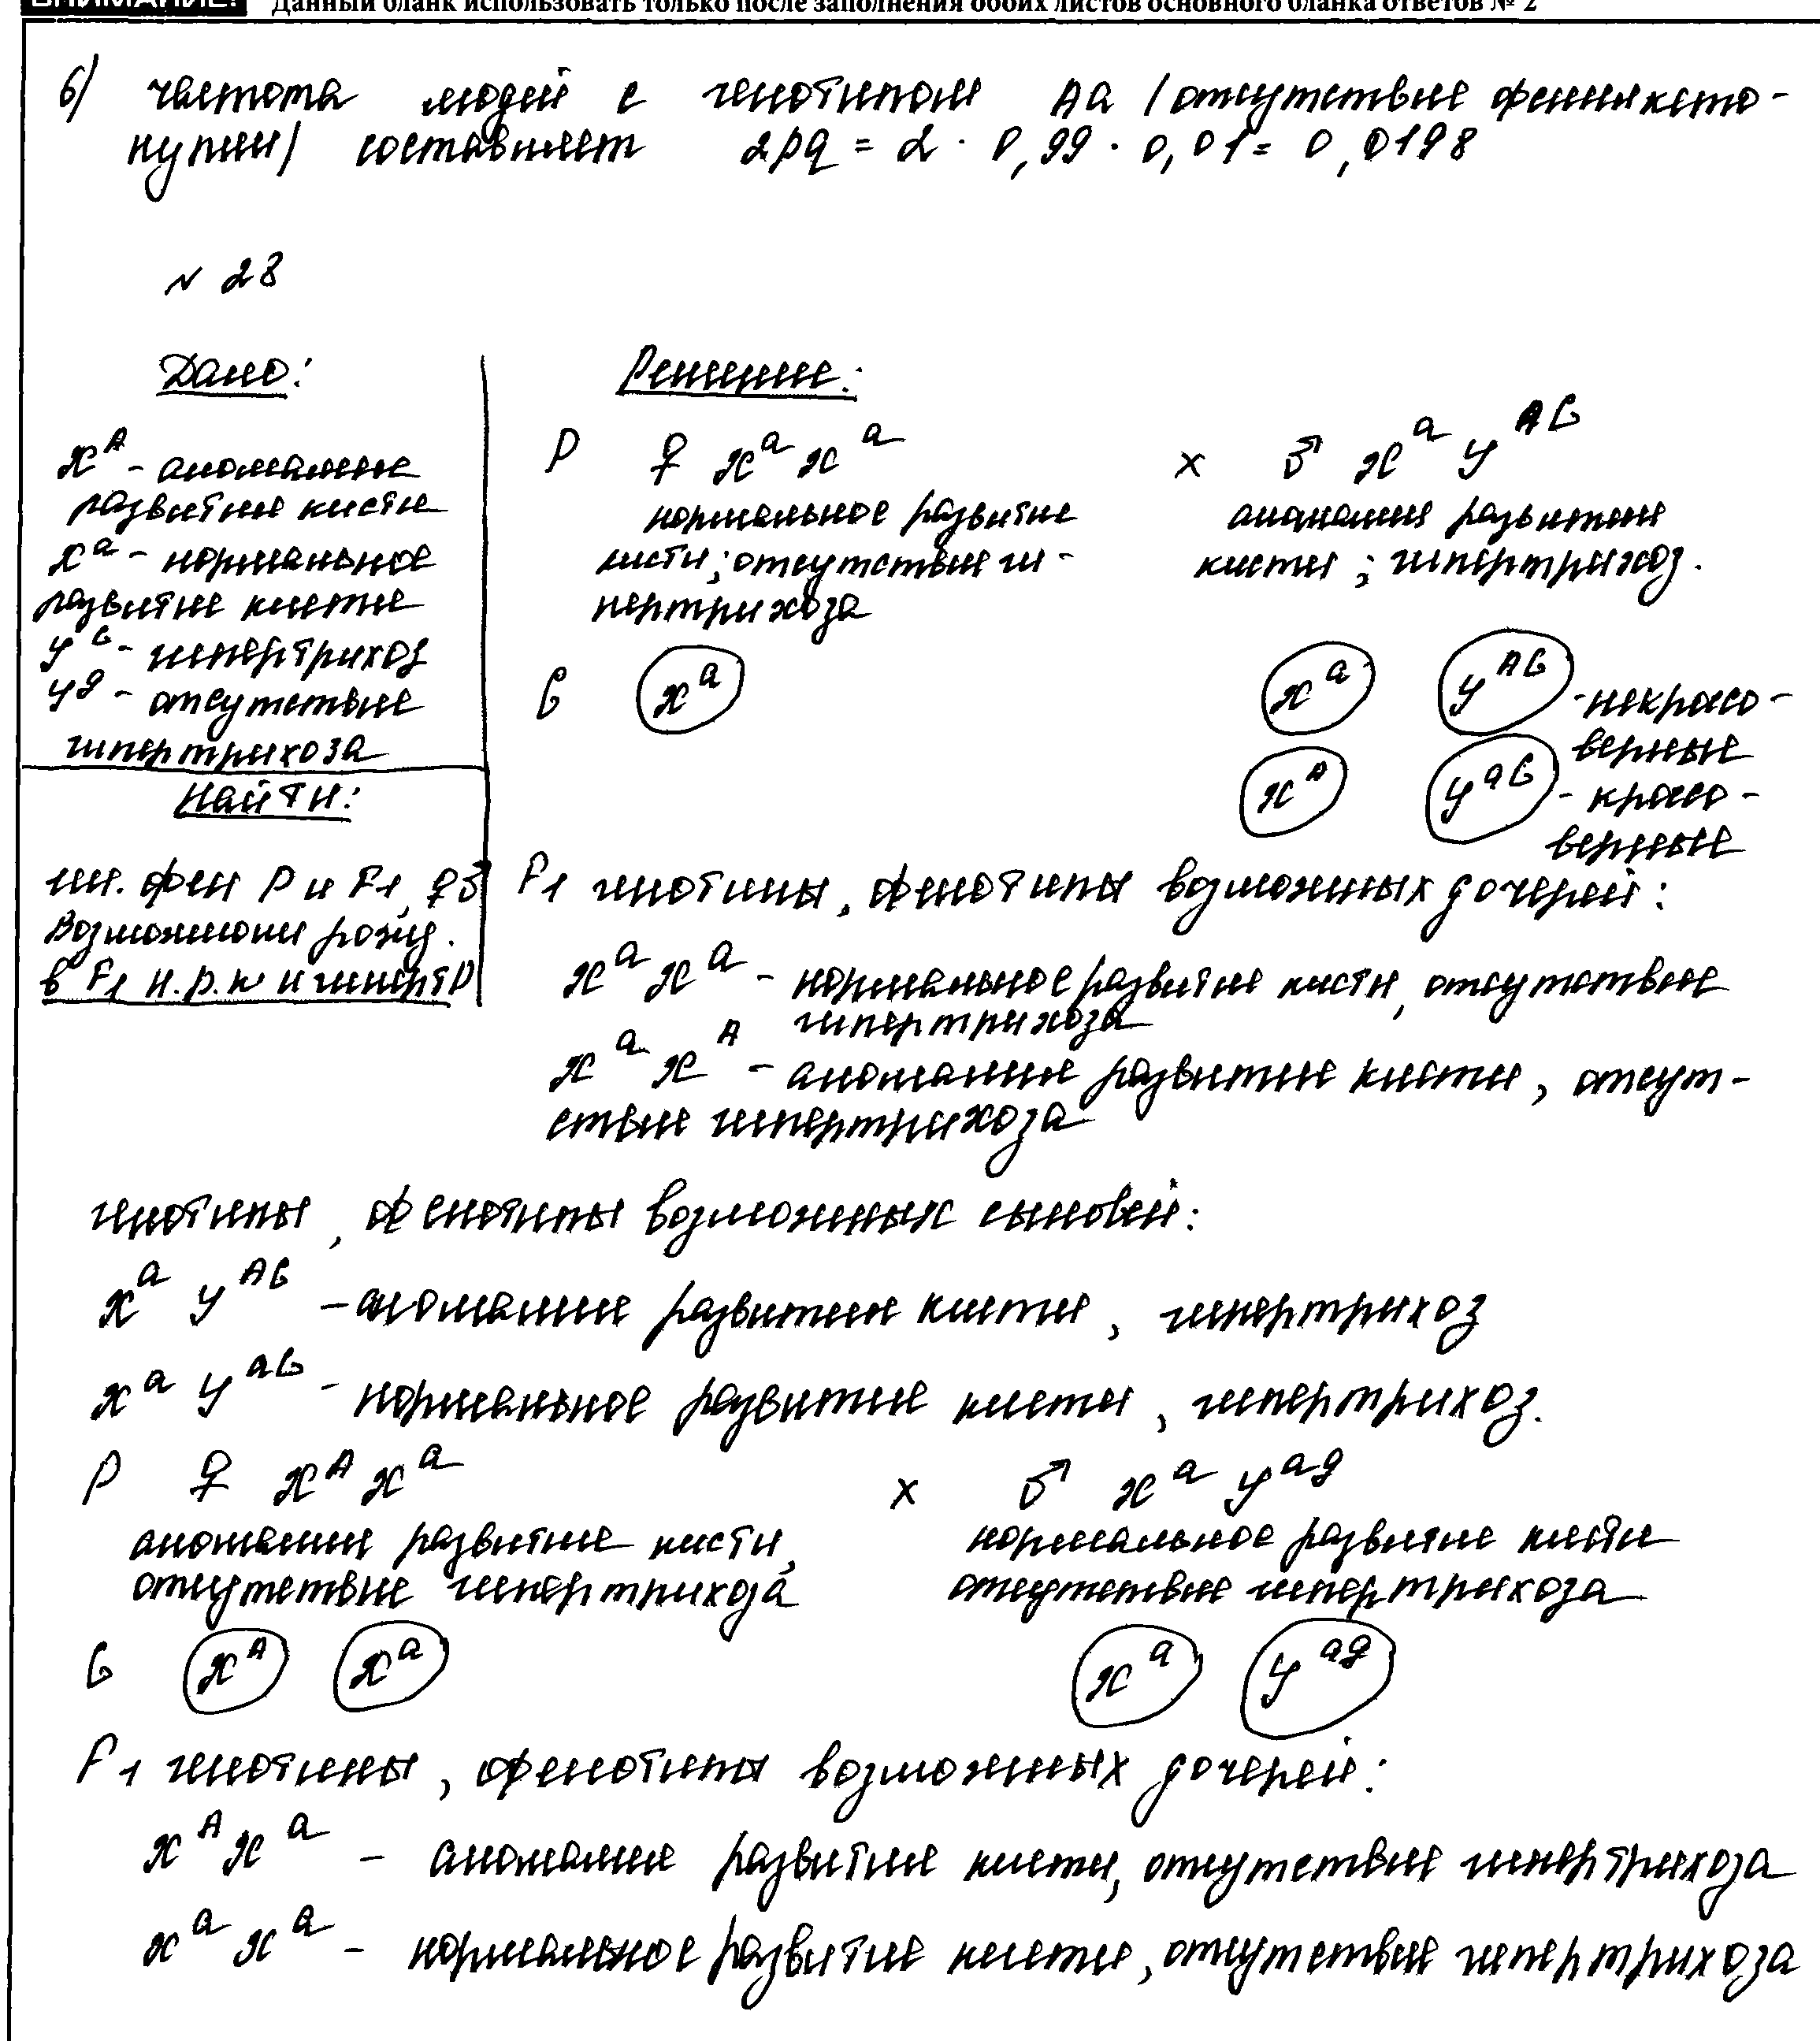 ВНИМАНИЕ! Данный бланк использовать только после заполнения обоих листов основного бланка ответов № 2
6) частота людей с генотипом Аа (отсутствие фенилкето-
нурии) составляет 2pq = 2 · 0,99 · 0,01 = 0,0198
N 28
Дано:
X^A - аномальное
развитие кисти
X^a - нормальное
развитие кисти
Y^G - гипертрихоз
Y^g - отсутствие
гипертрихоза
Найти:
ген. фен P и F1, ♀♂
Возможност рожд.
в F1 н.р.к и гиперт
Решение:
P ♀ X^a X^a x ♂ X^a Y^AG
нормальное развитие аномалия развития
кисти; отсутствие ги- кисти; гипертрихоз.
пертрихоза
G X^a X^a Y^AG - некроссо-
верные
X^A Y^aG - кроссо-
верные
F1 генотипы, фенотипы возможных дочерей:
X^a X^a - нормальное развитие кисти, отсутствие
гипертрихоза
X^a X^A - аномалия развитие кисти, отсут-
ствие гипертрихоза
генотипы, фенотипы возможных сыновей:
X^a Y^AG - аномалия развития кисти, гипертрихоз
X^a Y^aG - нормальное развитие кисти, гипертрихоз.
P ♀ X^A X^a x ♂ X^a Y^ag
аномалия развитие кисти, нормальное развитие кисти
отсутствие гипертрихоза отсутствие гипертрихоза
G X^A X^a X^a Y^ag
F1 генотипы, фенотипы возможных дочерей:
X^A X^a - аномалия развитие кисти, отсутствие гипертрихоза
X^a X^a - нормальное развитие кисти, отсутствие гипертрихоза